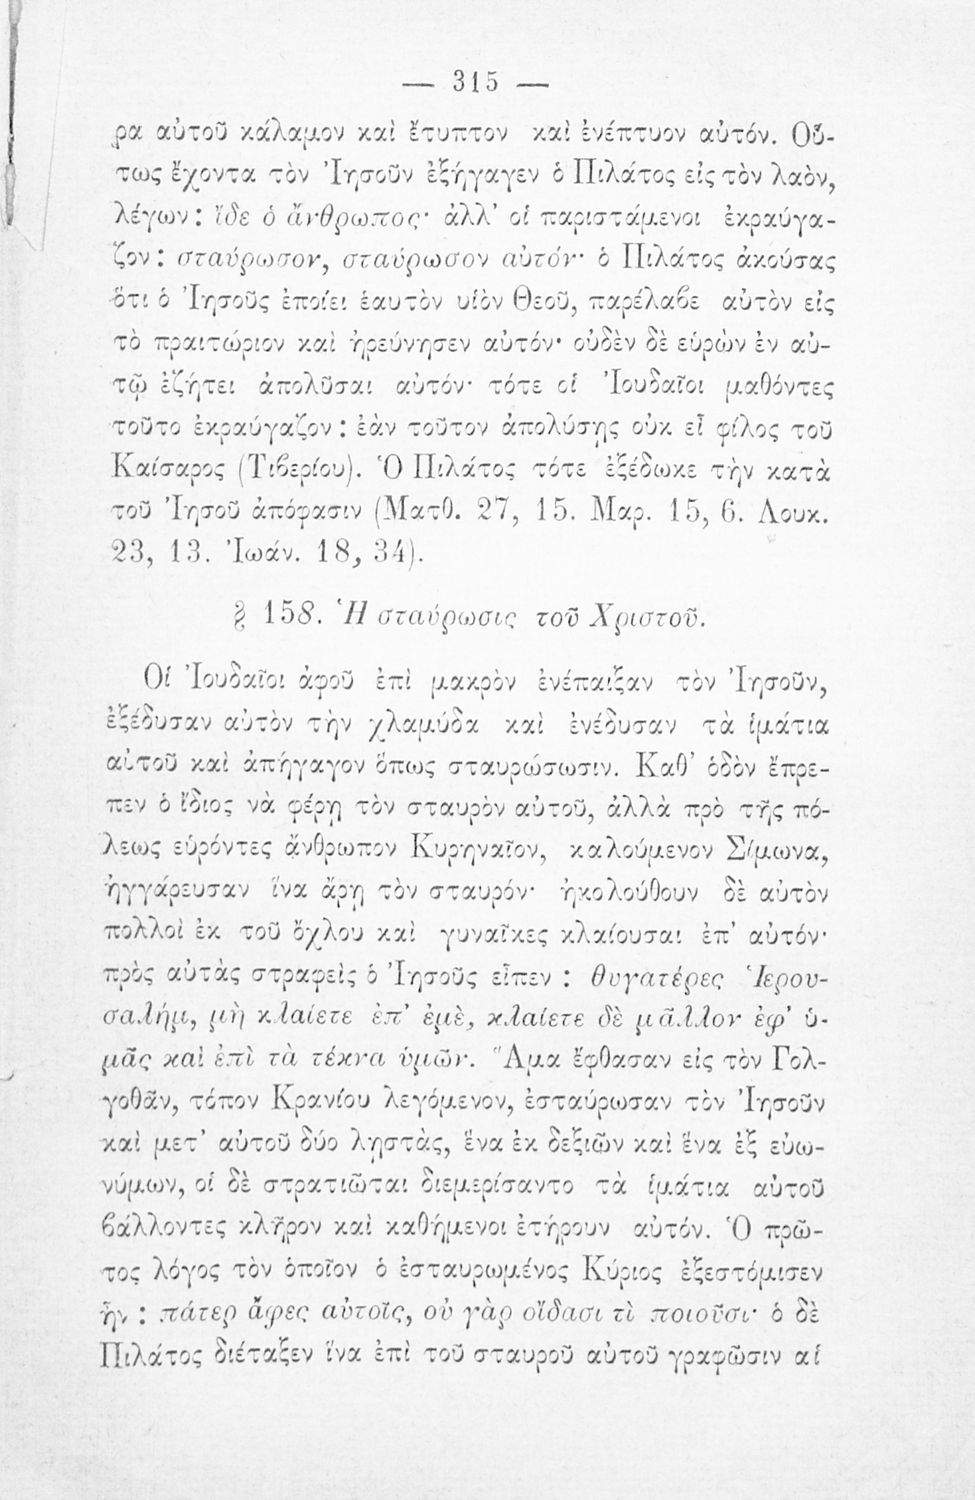 — 315 —
ρα αὐτοῦ κάλαμον καὶ ἔτυπτον καὶ ἐνέπτυον αὐτόν. Οὕ-
τως ἔχοντα τὸν Ἰησοῦν ἐξήγαγεν ὁ Πιλάτος εἰς τὸν λαὸν,
λέγων : ἴδε ὁ ἄνθρωπος· ἀλλ’ οἱ παριστάμενοι ἐκραύγα-
ζον : σταύρωσον, σταύρωσον αὐτόν· ὁ Πιλάτος ἀκούσας
ὅτι ὁ Ἰησοῦς ἐποίει ἑαυτὸν υἱὸν Θεοῦ, παρέλαϐε αὐτὸν εἰς
τὸ πραιτώριον καὶ ἠρεύνησεν αὐτόν· οὐδὲν δὲ εὑρὼν ἐν αὐ-
τῷ ἐζήτει ἀπολῦσαι αὐτόν· τότε οἱ Ἰουδαῖοι μαθόντες
τοῦτο ἐκραύγαζον : ἐὰν τοῦτον ἀπολύσῃς οὐκ εἶ φίλος τοῦ
Καίσαρος (Τιϐερίου). Ὁ Πιλάτος τότε ἐξέδωκε τὴν κατὰ
τοῦ Ἰησοῦ ἀπόφασιν (Ματθ. 27, 15. Μαρ. 15, 6. Λουκ.
23, 13. Ἰωάν. 18, 34).
§ 158. Ἡ σταύρωσις τοῦ Χριστοῦ.
Οἱ Ἰουδαῖοι ἀφοῦ ἐπὶ μακρὸν ἐνέπαιξαν τὸν Ἰησοῦν,
ἐξέδυσαν αὐτὸν τὴν χλαμύδα καὶ ἐνέδυσαν τὰ ἱμάτια
αὐτοῦ καὶ ἀπήγαγον ὅπως σταυρώσωσιν. Καθ’ ὁδὸν ἔπρε-
πεν ὁ ἴδιος νὰ φέρῃ τὸν σταυρὸν αὐτοῦ, ἀλλὰ πρὸ τῆς πό-
λεως εὑρόντες ἄνθρωπον Κυρηναῖον, καλούμενον Σίμωνα,
ἠγγάρευσαν ἵνα ἄρῃ τὸν σταυρόν· ἠκολούθουν δὲ αὐτὸν
πολλοὶ ἐκ τοῦ ὄχλου καὶ γυναῖκες κλαίουσαι ἐπ’ αὐτόν·
πρὸς αὐτὰς στραφεὶς ὁ Ἰησοῦς εἶπεν : θυγατέρες Ἱερου-
σαλήμ, μὴ κλαίετε ἐπ’ ἐμὲ, κλαίετε δὲ μᾶλλον ἐφ’ ὑ-
μᾶς καὶ ἐπὶ τὰ τέκνα ὑμῶν. Ἅμα ἔφθασαν εἰς τὸν Γολ-
γοθᾶν, τόπον Κρανίου λεγόμενον, ἐσταύρωσαν τὸν Ἰησοῦν
καὶ μετ’ αὐτοῦ δύο λῃστὰς, ἕνα ἐκ δεξιῶν καὶ ἕνα ἐξ εὐω-
νύμων, οἱ δὲ στρατιῶται διεμερίσαντο τὰ ἱμάτια αὐτοῦ
ϐάλλοντες κλῆρον καὶ καθήμενοι ἐτήρουν αὐτόν. Ὁ πρῶ-
τος λόγος τὸν ὁποῖον ὁ ἐσταυρωμένος Κύριος ἐξεστόμισεν
ἦν : πάτερ ἄφες αὐτοῖς, οὐ γὰρ οἴδασι τὶ ποιοῦσι· ὁ δὲ
Πιλάτος διέταξεν ἵνα ἐπὶ τοῦ σταυροῦ αὐτοῦ γραφῶσιν αἱ